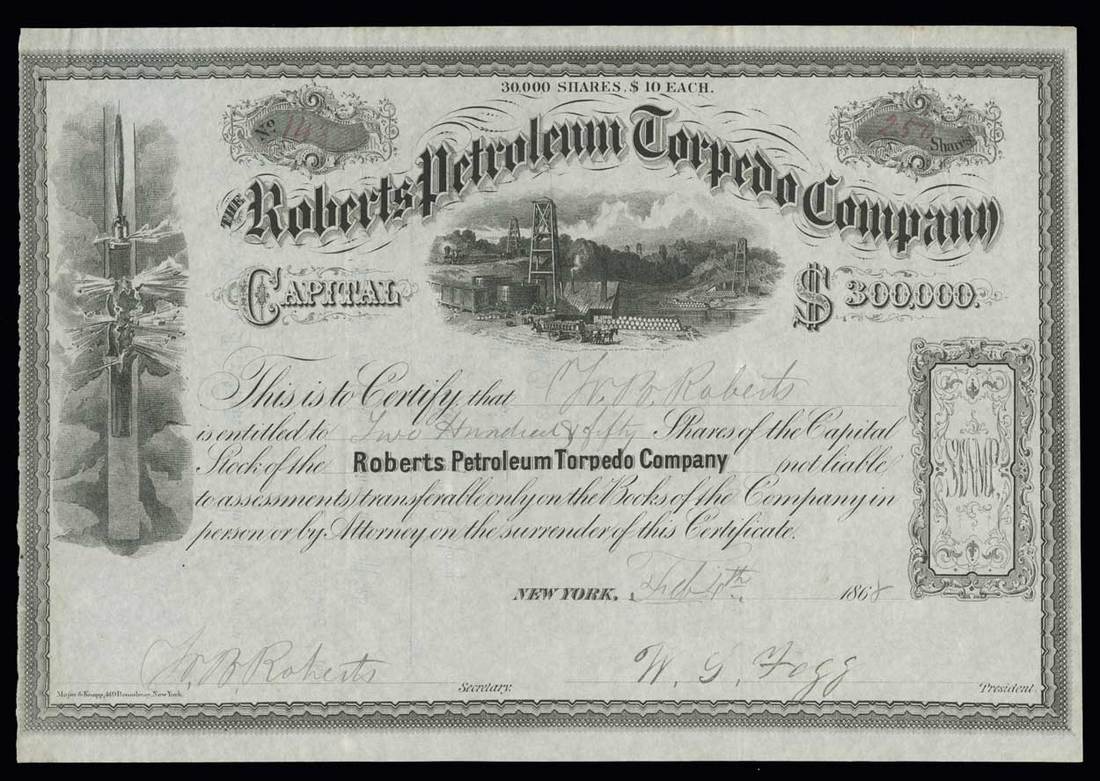 30,000 SHARES. $ 10 EACH.
No. 143
250 Shares
THE Roberts Petroleum Torpedo Company
CAPITAL $ 300,000.
This is to Certify, that W. B. Roberts
is entitled to Two Hundred & fifty Shares of the Capital
Stock of the Roberts Petroleum Torpedo Company not liable
to assessments, transferable only on the Books of the Company in
person or by Attorney on the surrender of this Certificate.
STAMP.
NEW YORK, Feb 4th 1868
W. B. Roberts Secretary.
W. G. Fogg President.
Major & Knapp, 449 Broadway, New York.